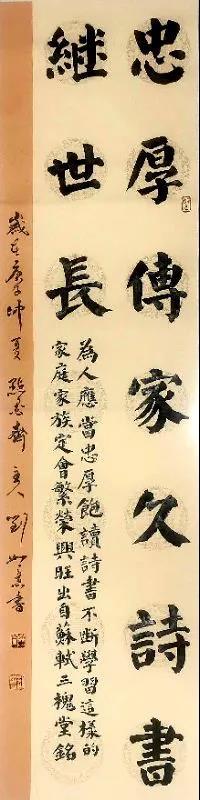 忠厚傳家久詩書
繼世長
為人應當忠厚飽讀詩書不斷學習這樣的
家庭家族定會繁榮興旺出自蘇軾三槐堂銘
歲在庚子仲夏點墨齋主人劉
書